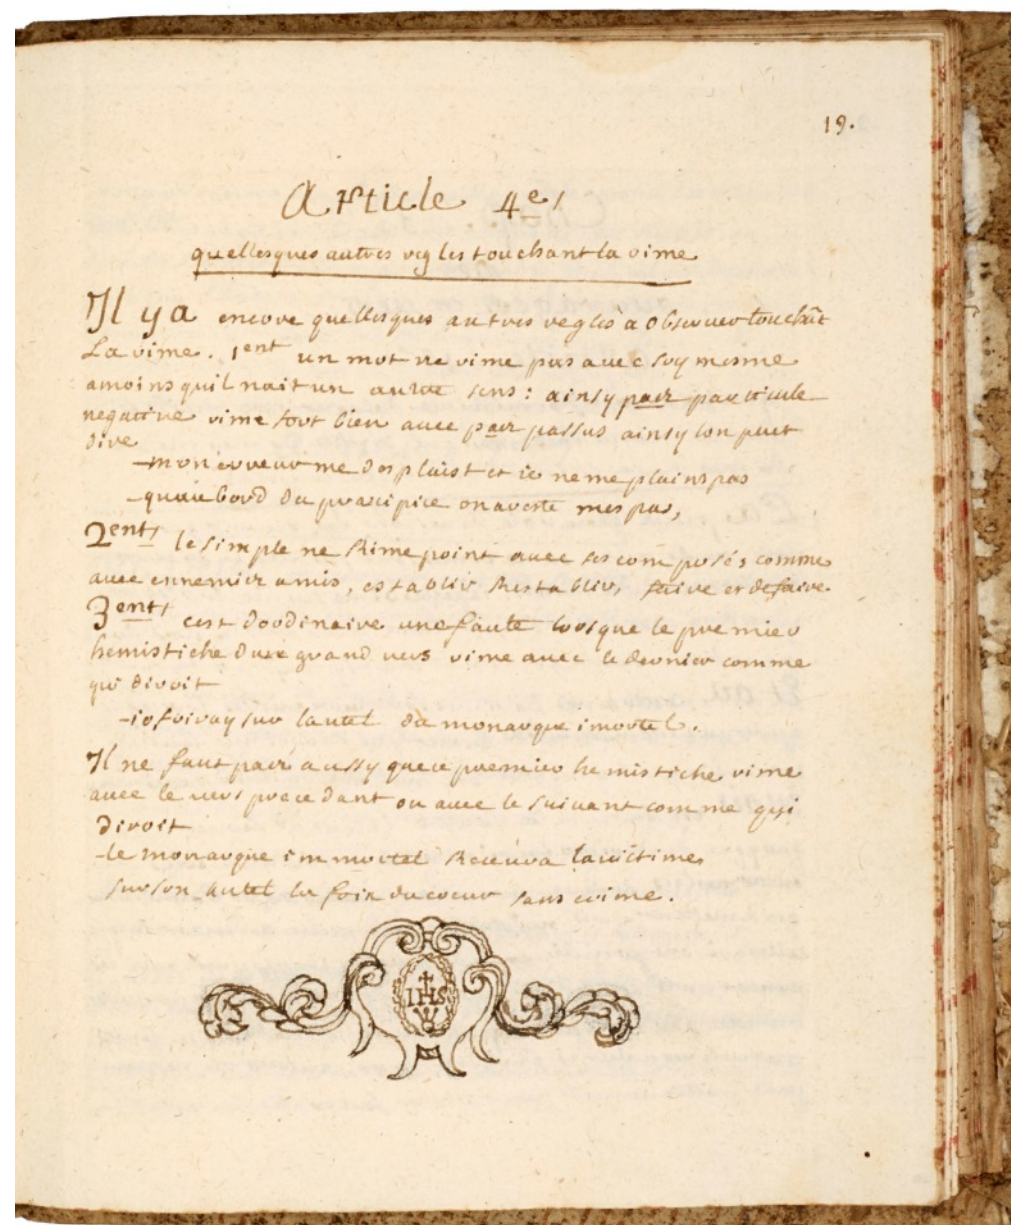 19.
Article 4e
quellesques autres regles touchant la rime
Il y a encore quellesques autres regles a observer touchāt
La rime. 1ent un mot ne rime pas avec soy mesme
amoins quil nait un autre sens : ainsy pas particule
negative rime fort bien avec pas passus ainsy lon peut
dire
-mon erreur me desplaist et ie ne me plains pas
-quau bord du precipice on areste mes pas,
2ent le simple ne Rime point avec ses composés comme
avec ennemis amis, establir Restablir, faire et defaire
3ent cest dordinaire une faute lorsque le premier
hemistiche dun grand vers rime avec le dernier comme
qui diroit
-ie
sur lautel du monarque imortel.
Il ne faut pas aussy que ce premier hemistiche rime
avec le vers precedant ou avec le suivant comme qui
diroit
-le monarque immortel Recevra la victime
sur son autel la foix du coeur sans crime.
IHS